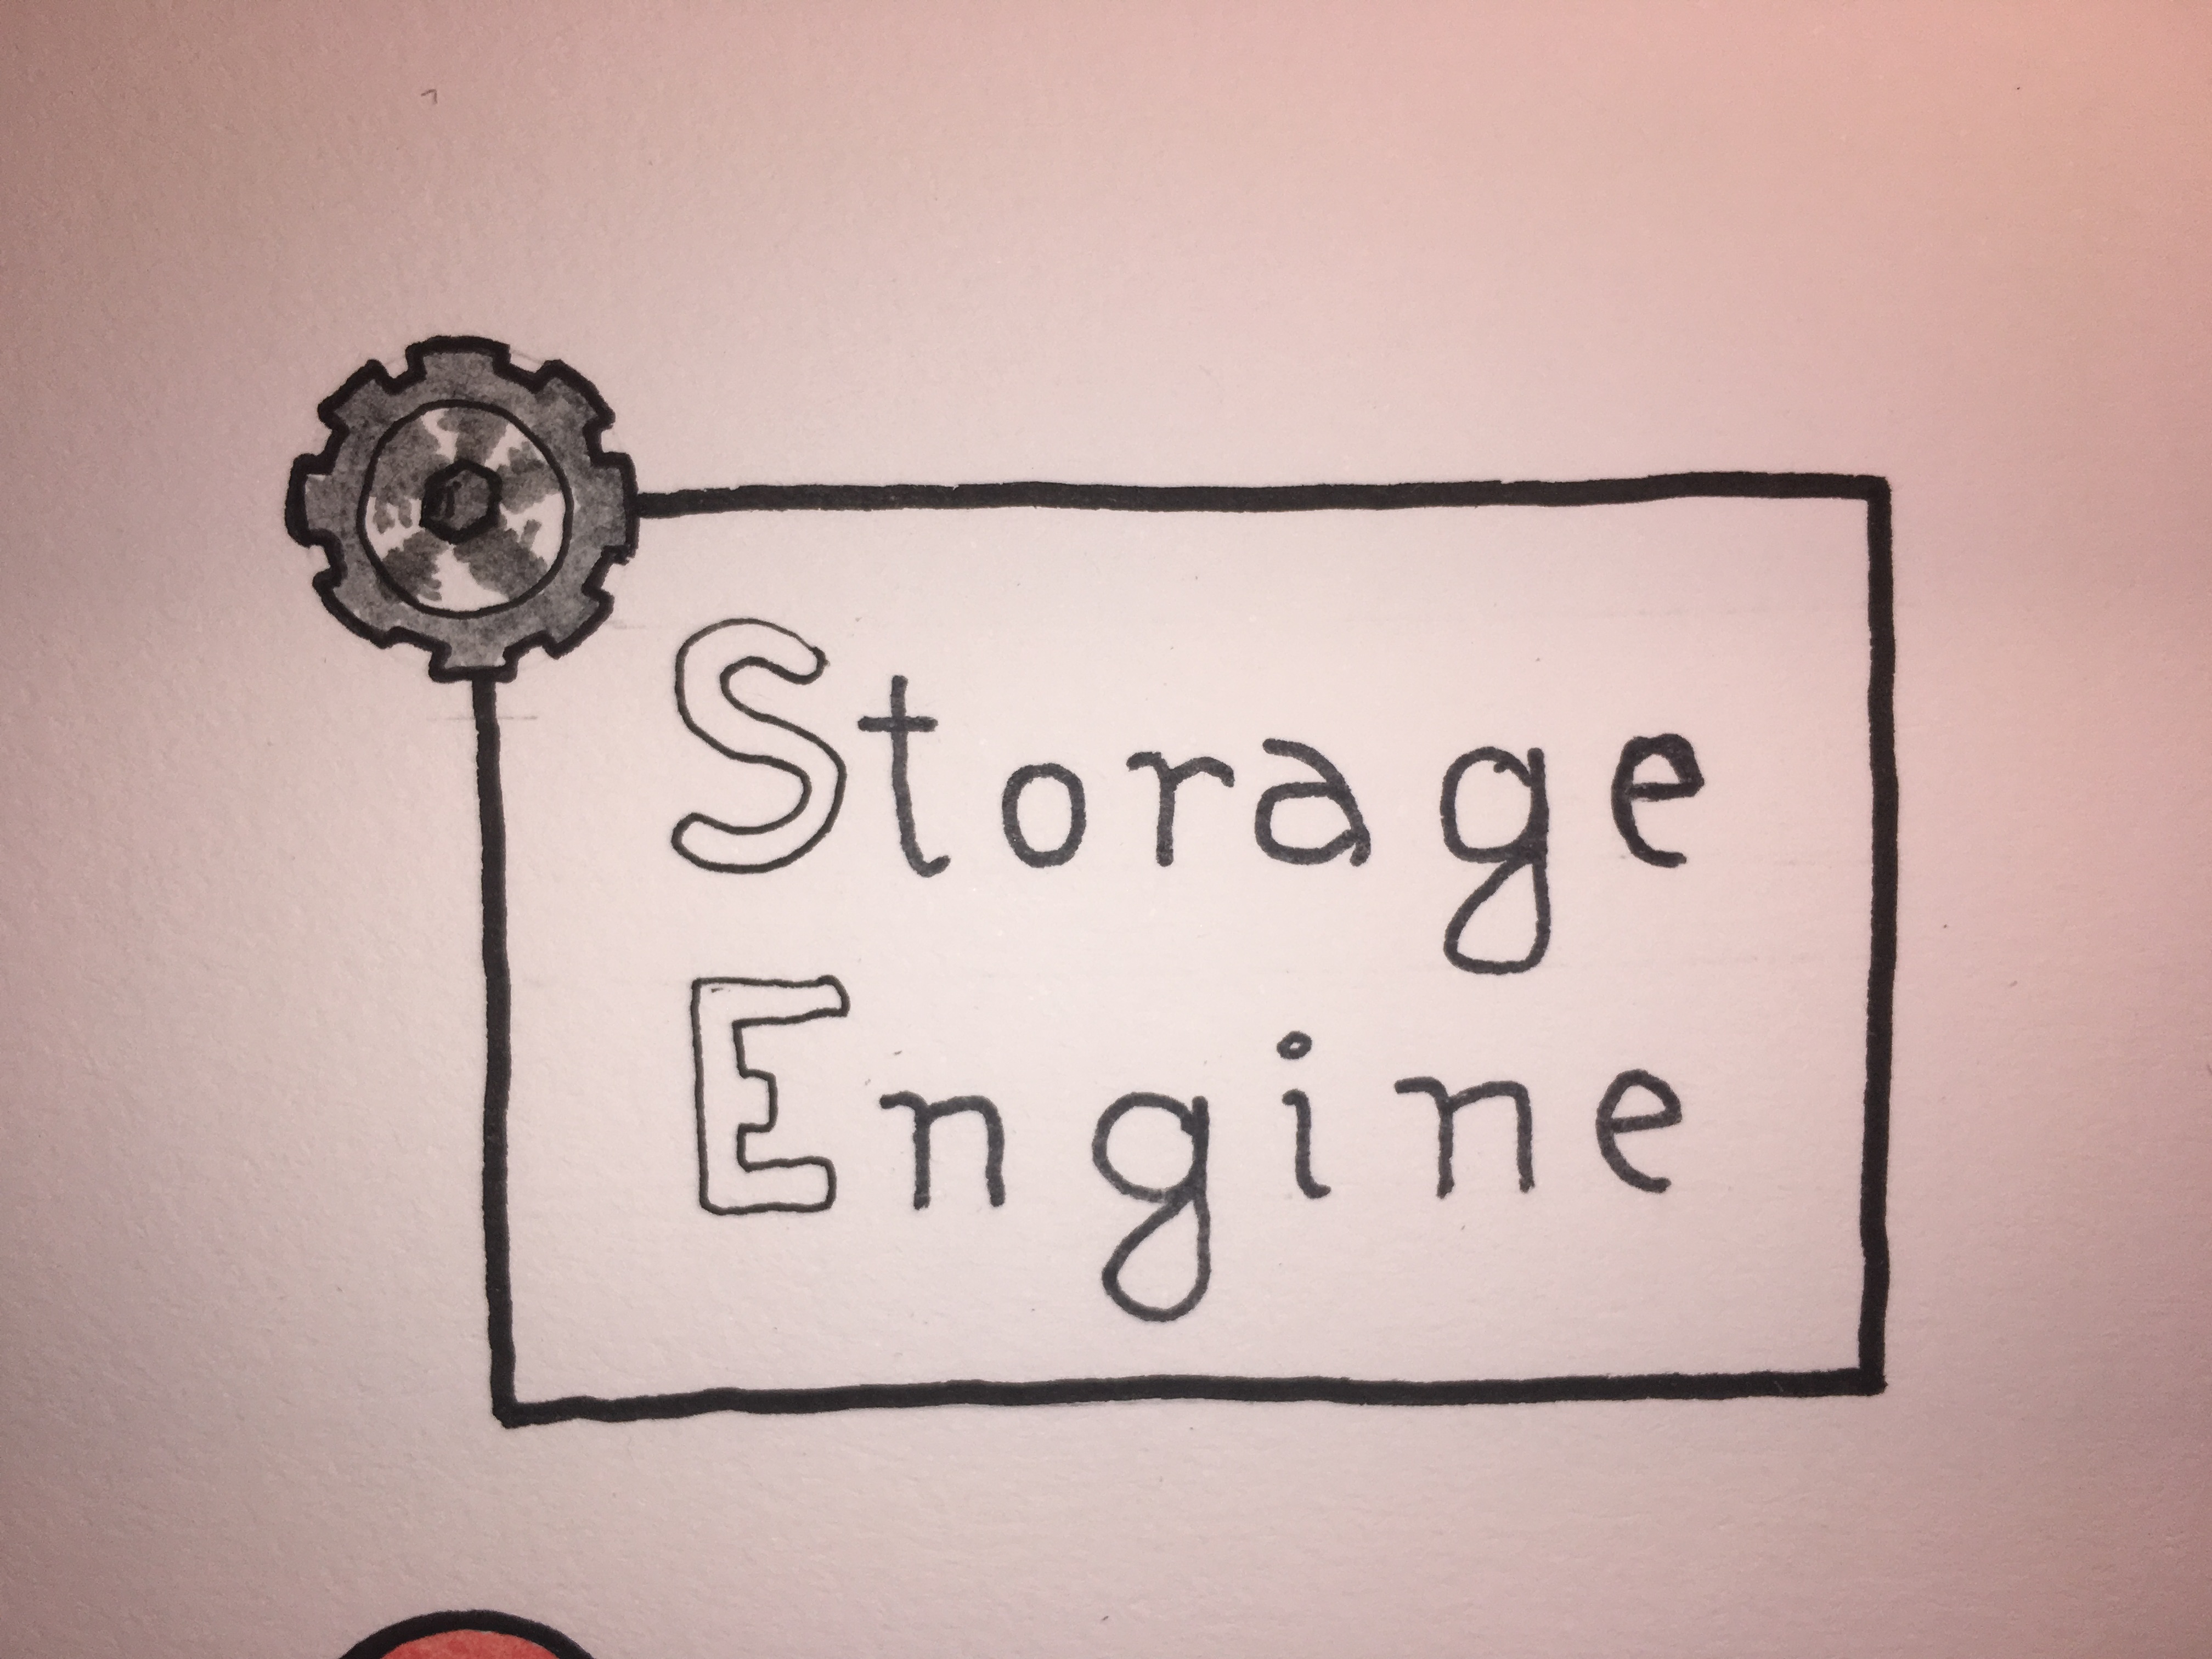 Storage
Engine